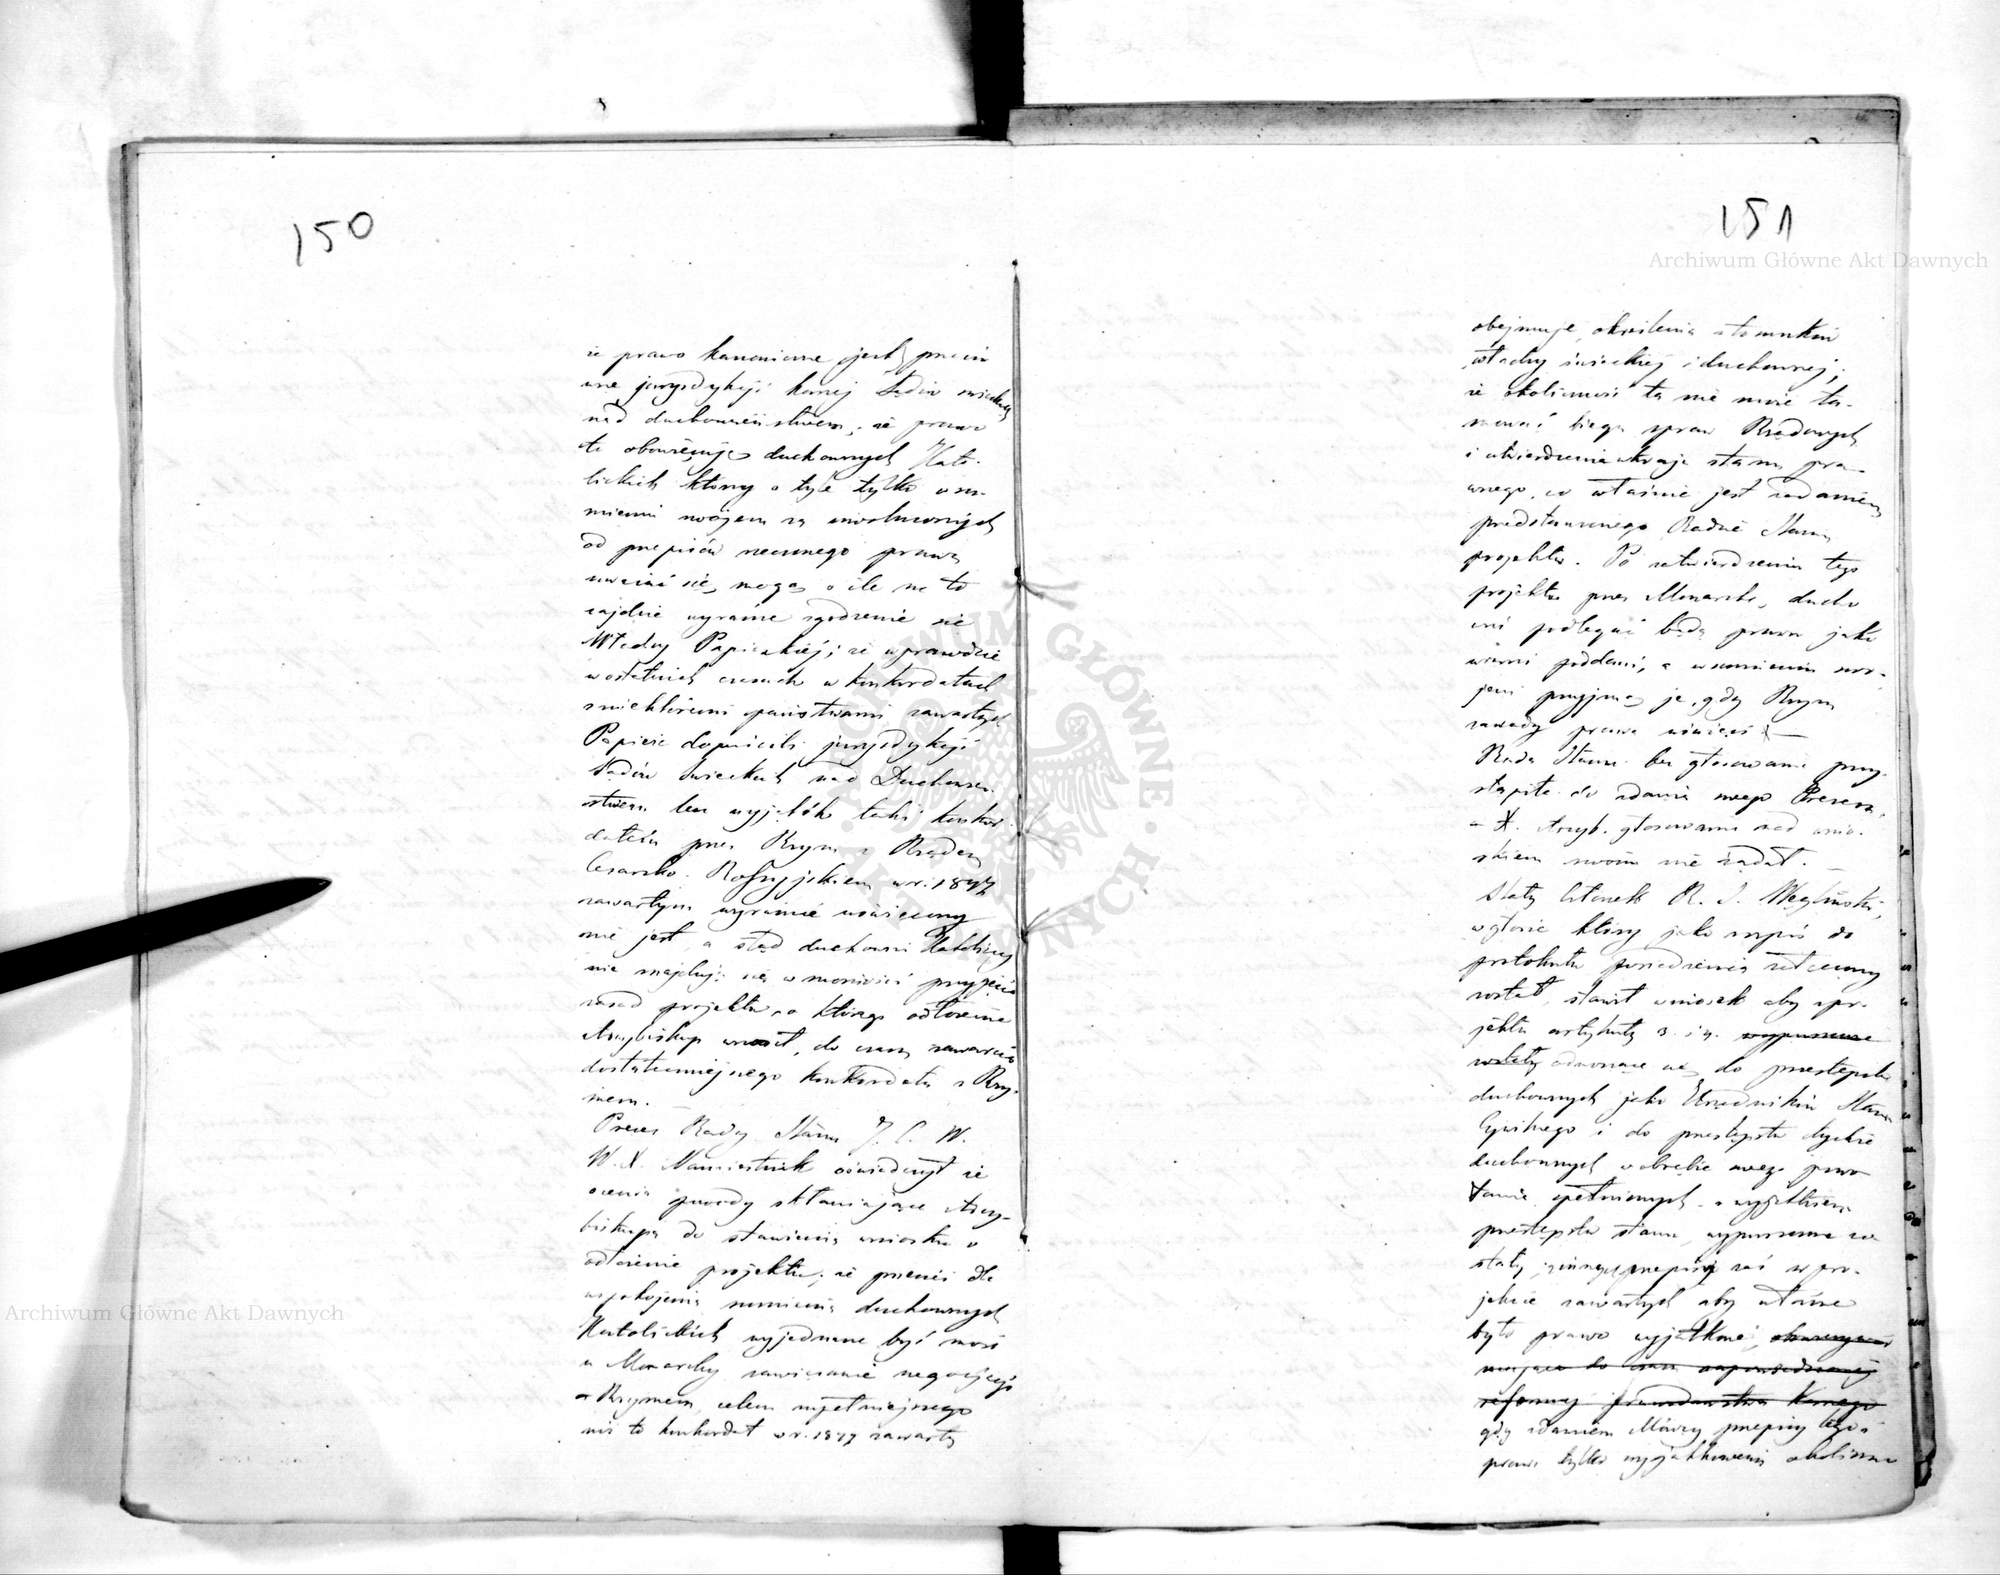 150
że prawo kanoniczne jest przeciw
ne jurysdykcji karnej Sądów świeckich
nad duchowieństwem; że prawo
to obowiązuje duchownych Kato-
lickich którzy o tyle tylko w su-
mieniu swojem za uwolnionych
od przepisów rzeczonego prawa
uważać się mogą o ile na to
zajdzie wyraźne zgodzenie się
Władzy Papieskiej; że wprawdzie
w ostatnich czasach w konkordatach
z niektóremi państwami zawartych
Papież dopuścili jurysdykcji
Sądów świeckich nad Duchowień
stwem lecz wyjątek taki konkor
datem przez Rzym z Rządem
Cesarsko Rossyjskiem w r. 1847
zawartym wyraźnie uświęcony
nie jest, a stąd duchowni Katoliccy
nie znajdują się w możności przyjęcia
zasad projektu, o którego odłożenie
Arcybiskup wnosił, do czasu zawarcia
dostateczniejszego konkordatu z Rzy-
mem.
Prezes Rady Stanu J. C. W.
W. X. Namiestnik oświadczył że
ocenia powody skłaniające Arcy-
biskupa do stawienia wniosku o
odłożenie projektu; że przecież dla
uspokojenia sumienia duchownych
Katolickich wyjednane być może
u Monarchy zawiązanie negocjacji
z Rzymem, celem zupełniejszego
niż to konkordat w r. 1847 zawarty
151
Archiwum Główne Akt Dawnych
obejmuje, określenia stosunków
władzy świeckiej i duchownej;
że okoliczność ta nie może ta-
mować biegu spraw Rządowych
i utwierdzenia w kraju stanu pra-
wnego, co właśnie jest zadaniem
przedstawionego Radzie Stanu
projektu. Po zatwierdzeniu tego
projektu przez Monarchę, ducho
wni podlegać będą prawu jako
wierni poddani, a w sumieniu swo-
jem przyjmą je, gdy Rzym
zasady prawa uświęci.
Rada Stanu bez głosowania przy-
stąpiła do zdania swego Prezesa,
a X. Arcyb. głosowania nad wnio-
skiem swoim nie żądał.
Stały Członek R. S. Węgliński,
w głosie który jako wypis do
protokółu posiedzenia załączony
został, stawił wniosek aby z pro-
jektu artykuły 3. i 4. wypuszczone
zostały odnoszące się do przestępstw
duchownych jako Urzędników Stanu
Cywilnego i do przestępstw tychże
duchownych w obrębie swego powo
łania spełnionych, z wyjątkiem
przestępstw stanu, wypuszczone zo
stały, z innych przepisów zaś w pro-
jekcie zawartych aby utworzone
było prawo wyjątkowe, obowiązywać
mające do czasu zapowiedzianej
reformy prawodawstwa karnego
gdy zdaniem Mówcy przepisy tego
prawa tylko wyjątkowemi okoliczno
Archiwum Główne Akt Dawnych
ARCHIWUM GŁÓWNE AKT DAWNYCH